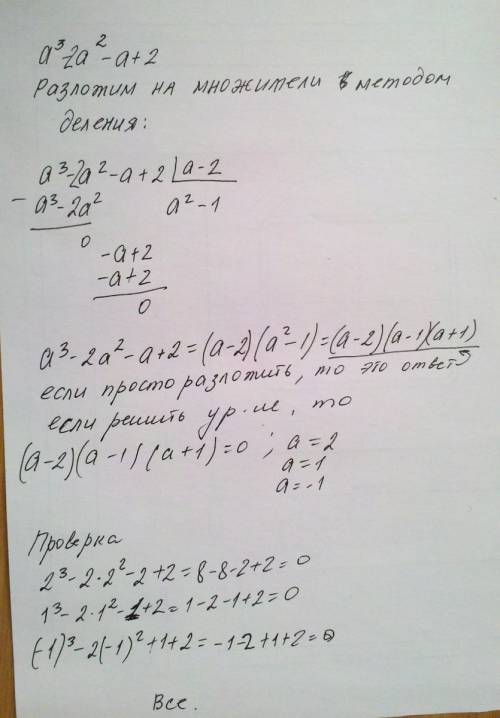 a³-2a²-a+2
Разложим на множители методом
деления:
a³-2a²-a+2 | a-2
- a³-2a² a²-1
0
-a+2
-a+2
0
a³-2a²-a+2=(a-2)(a²-1)=(a-2)(a-1)(a+1)
если просто разложить, то это ответ
если решить ур-ие, то
(a-2)(a-1)(a+1)=0; a=2
a=1
a=-1
Проверка
2³-2·2²-2+2=8-8-2+2=0
1³-2·1²-1+2=1-2-1+2=0
(-1)³-2(-1)²+1+2=-1-2+1+2=0
Все.